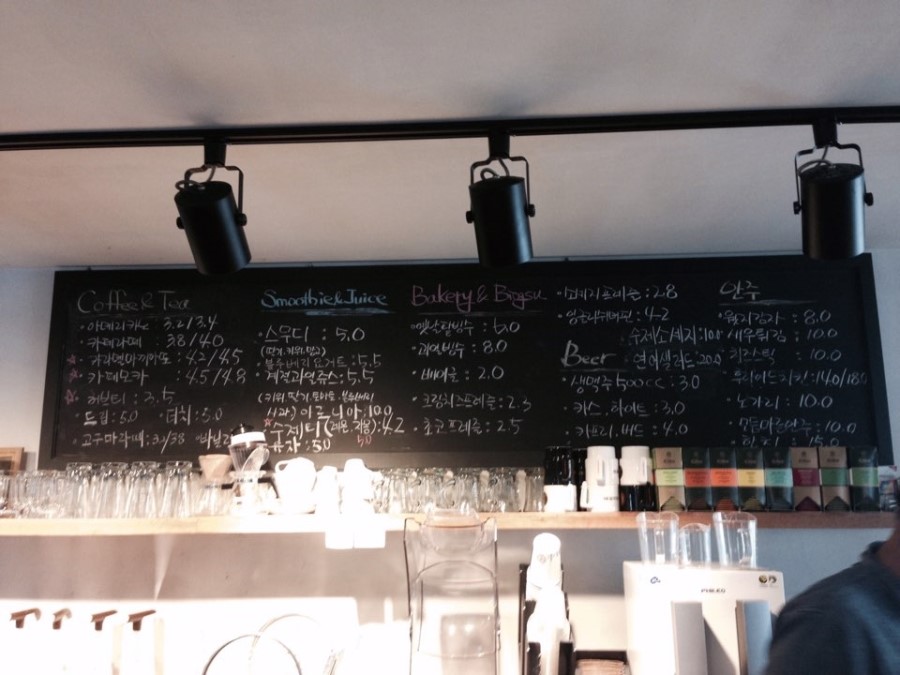 Coffee & Tea
아메리카노 3.2/3.4
카페라떼 3.8/4.0
카라멜마끼아또 : 4.2/4.5
카페모카 : 4.5/4.8
허브티 : 3.5
드립 : 5.0 더치 : 5.0
고구마라떼 : 3.0/3.8
Smoothie & Juice
스무디 : 5.0
(딸기, 키위, 망고)
블루베리요거트 : 5.5
계절과일쥬스 : 5.5
(키위, 딸기, 토마토, 블루베리
사과) 이르니아 : 10.0
수제티 (레몬, 자몽) : 4.2
유자 : 5.0 5.0
Bakery & Bingsu
옛날팥빙수 : 6.0
과일빙수 : 8.0
베이글 : 2.0
크림치즈프레즐 : 2.3
초코프레즐 : 2.5
: 2.8
: 4.2
수제소세지 : 10.0
Beer 연어샐러드 : 20.0
생맥주 500cc : 3.0
카스, 하이트 : 3.0
카프리, 버드 : 4.0
안주
: 8.0
새우튀김 : 10.0
치즈스틱 : 10.0
후라이드치킨 : 14.0/18.0
노가리 : 10.0
모듬마른안주 : 10.0
: 15.0